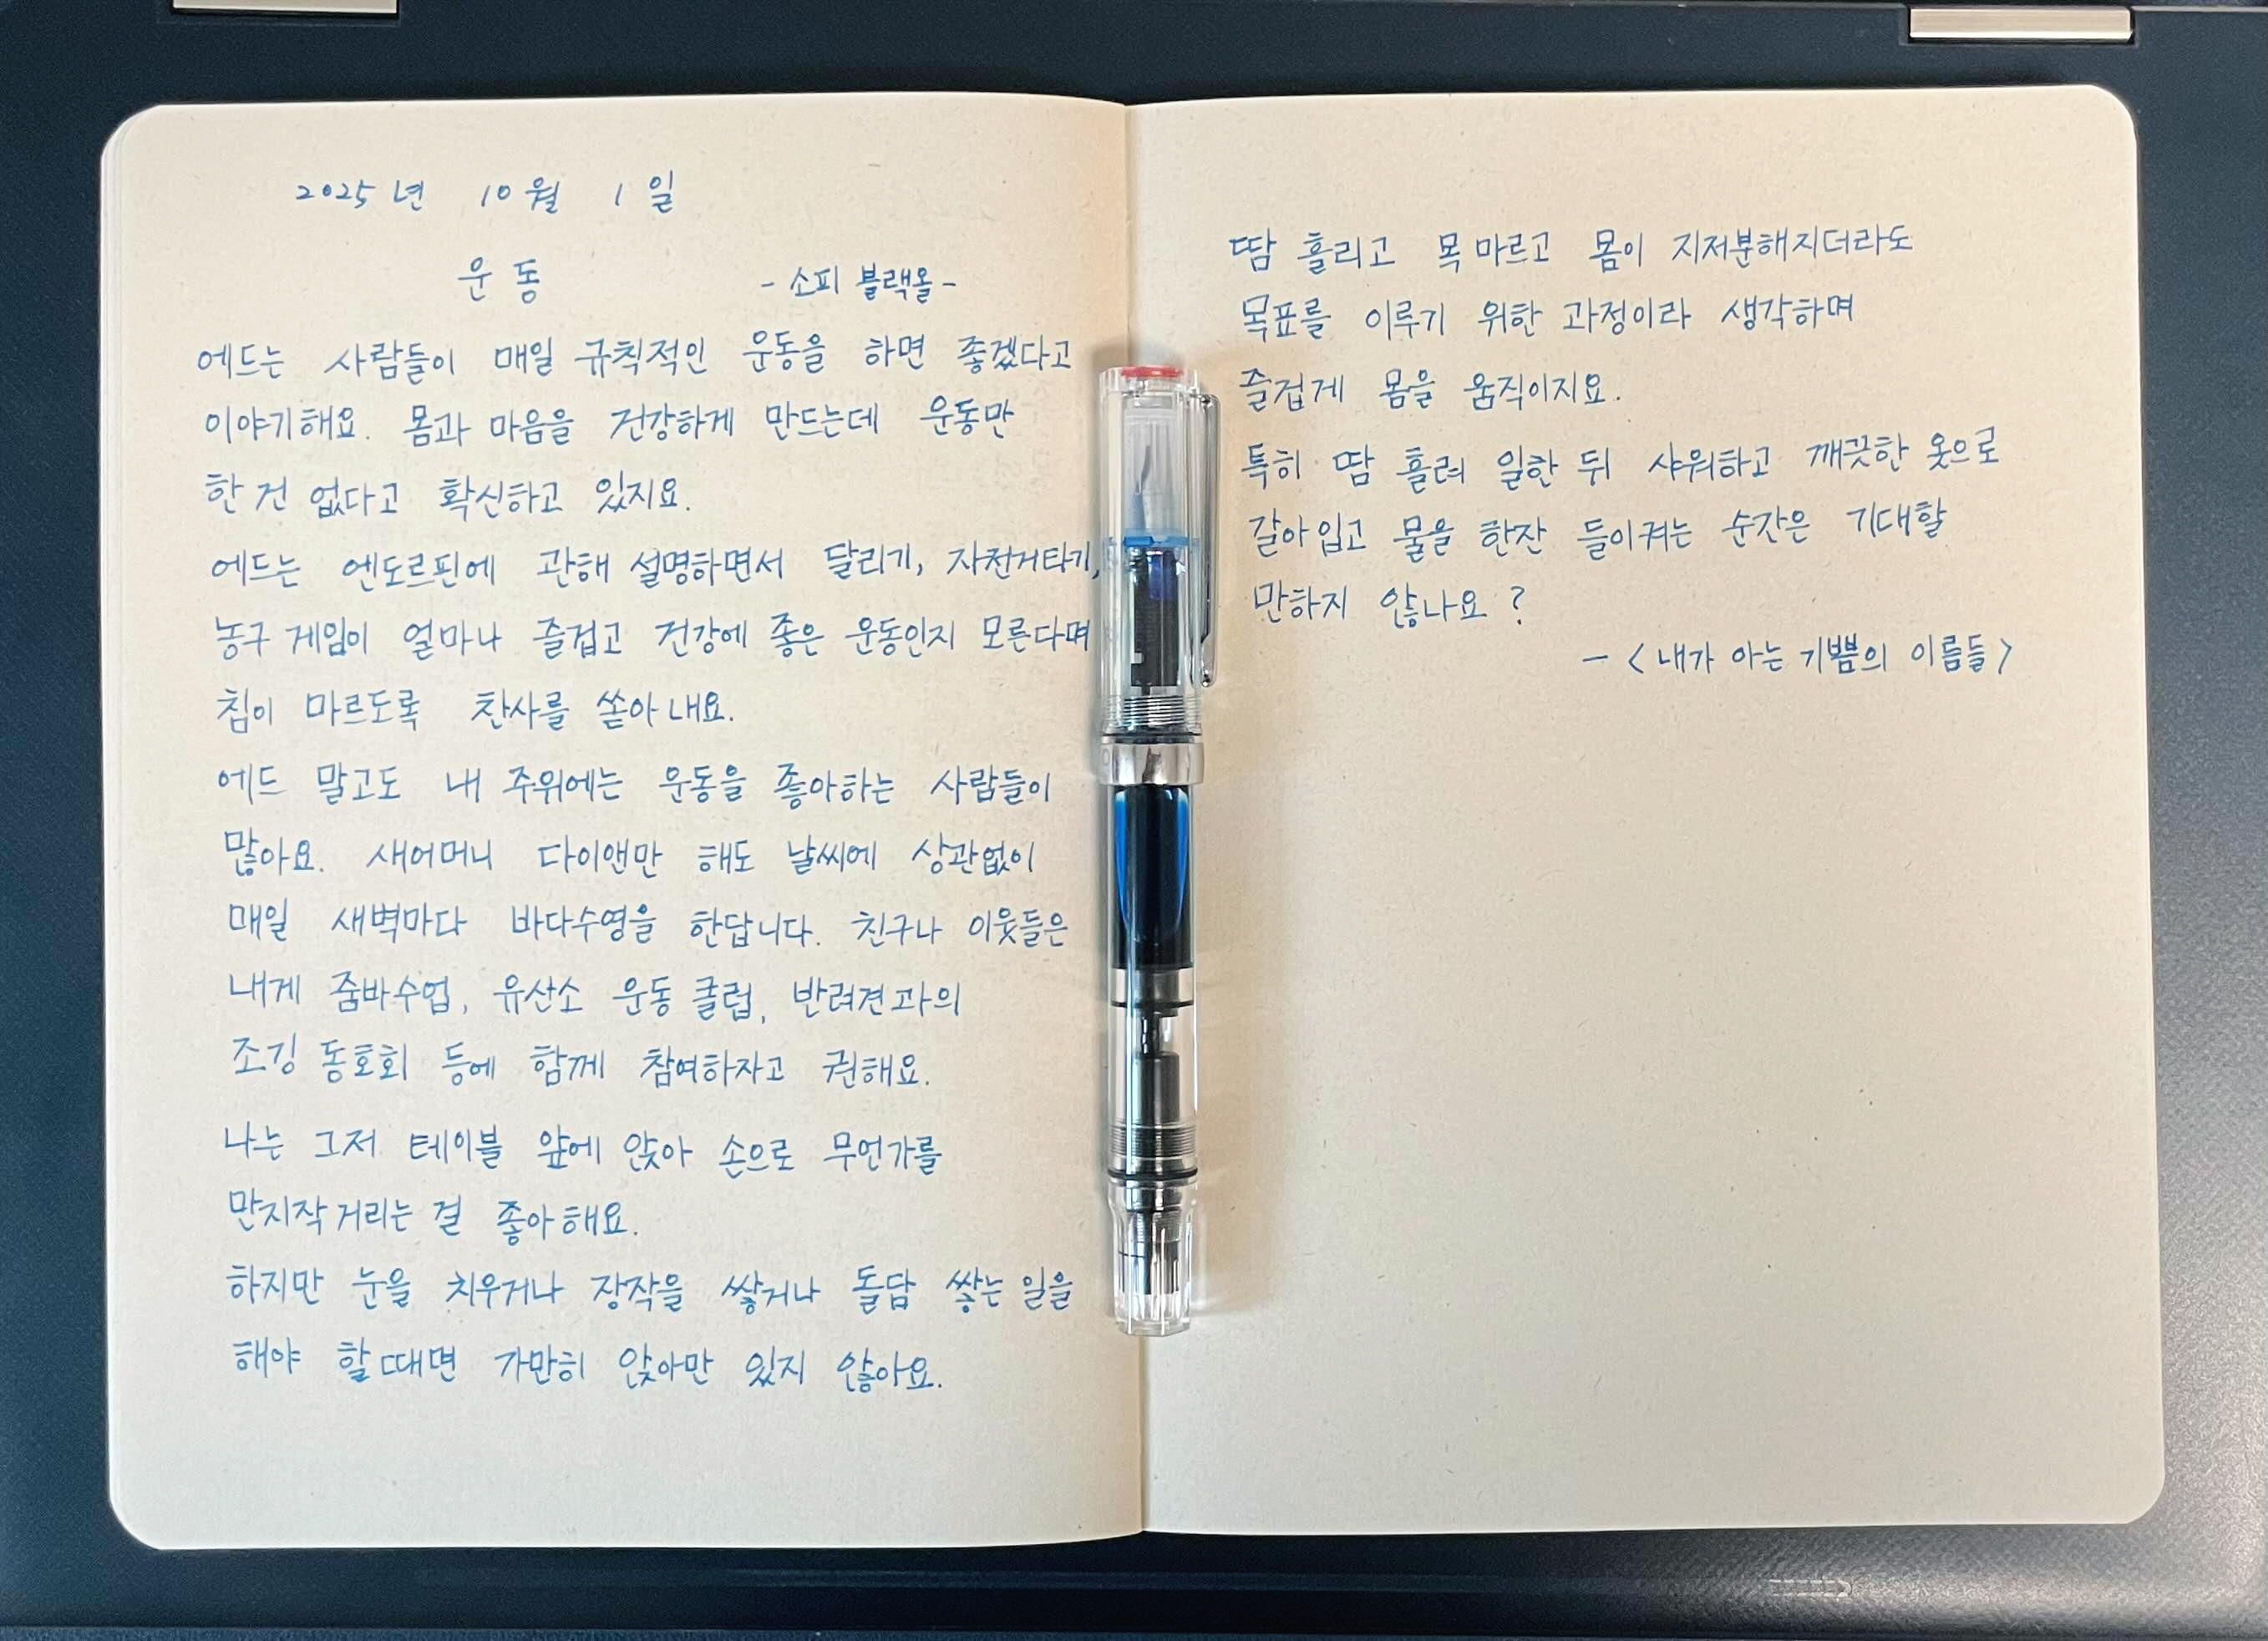 2025년 10월 1일
운동 - 소피 블랙올 -
에드는 사람들이 매일 규칙적인 운동을 하면 좋겠다고
이야기해요. 몸과 마음을 건강하게 만드는데 운동만
한 건 없다고 확신하고 있지요.
에드는 엔도르핀에 관해 설명하면서 달리기, 자전거타기,
농구 게임이 얼마나 즐겁고 건강에 좋은 운동인지 모른다며
침이 마르도록 찬사를 쏟아 내요.
에드 말고도 내 주위에는 운동을 좋아하는 사람들이
많아요. 새어머니 다이앤만 해도 날씨에 상관없이
매일 새벽마다 바다수영을 한답니다. 친구나 이웃들은
내게 줌바수업, 유산소 운동 클럽, 반려견과의
조깅 동호회 등에 함께 참여하자고 권해요.
나는 그저 테이블 앞에 앉아 손으로 무언가를
만지작거리는 걸 좋아해요.
하지만 눈을 치우거나 장작을 쌓거나 돌담 쌓는 일을
해야 할 때면 가만히 앉아만 있지 않아요.
땀 흘리고 목 마르고 몸이 지저분해지더라도
목표를 이루기 위한 과정이라 생각하며
즐겁게 몸을 움직이지요.
특히 땀 흘려 일한 뒤 샤워하고 깨끗한 옷으로
갈아입고 물을 한잔 들이켜는 순간은 기대할
만하지 않나요?
- <내가 아는 기쁨의 이름들>